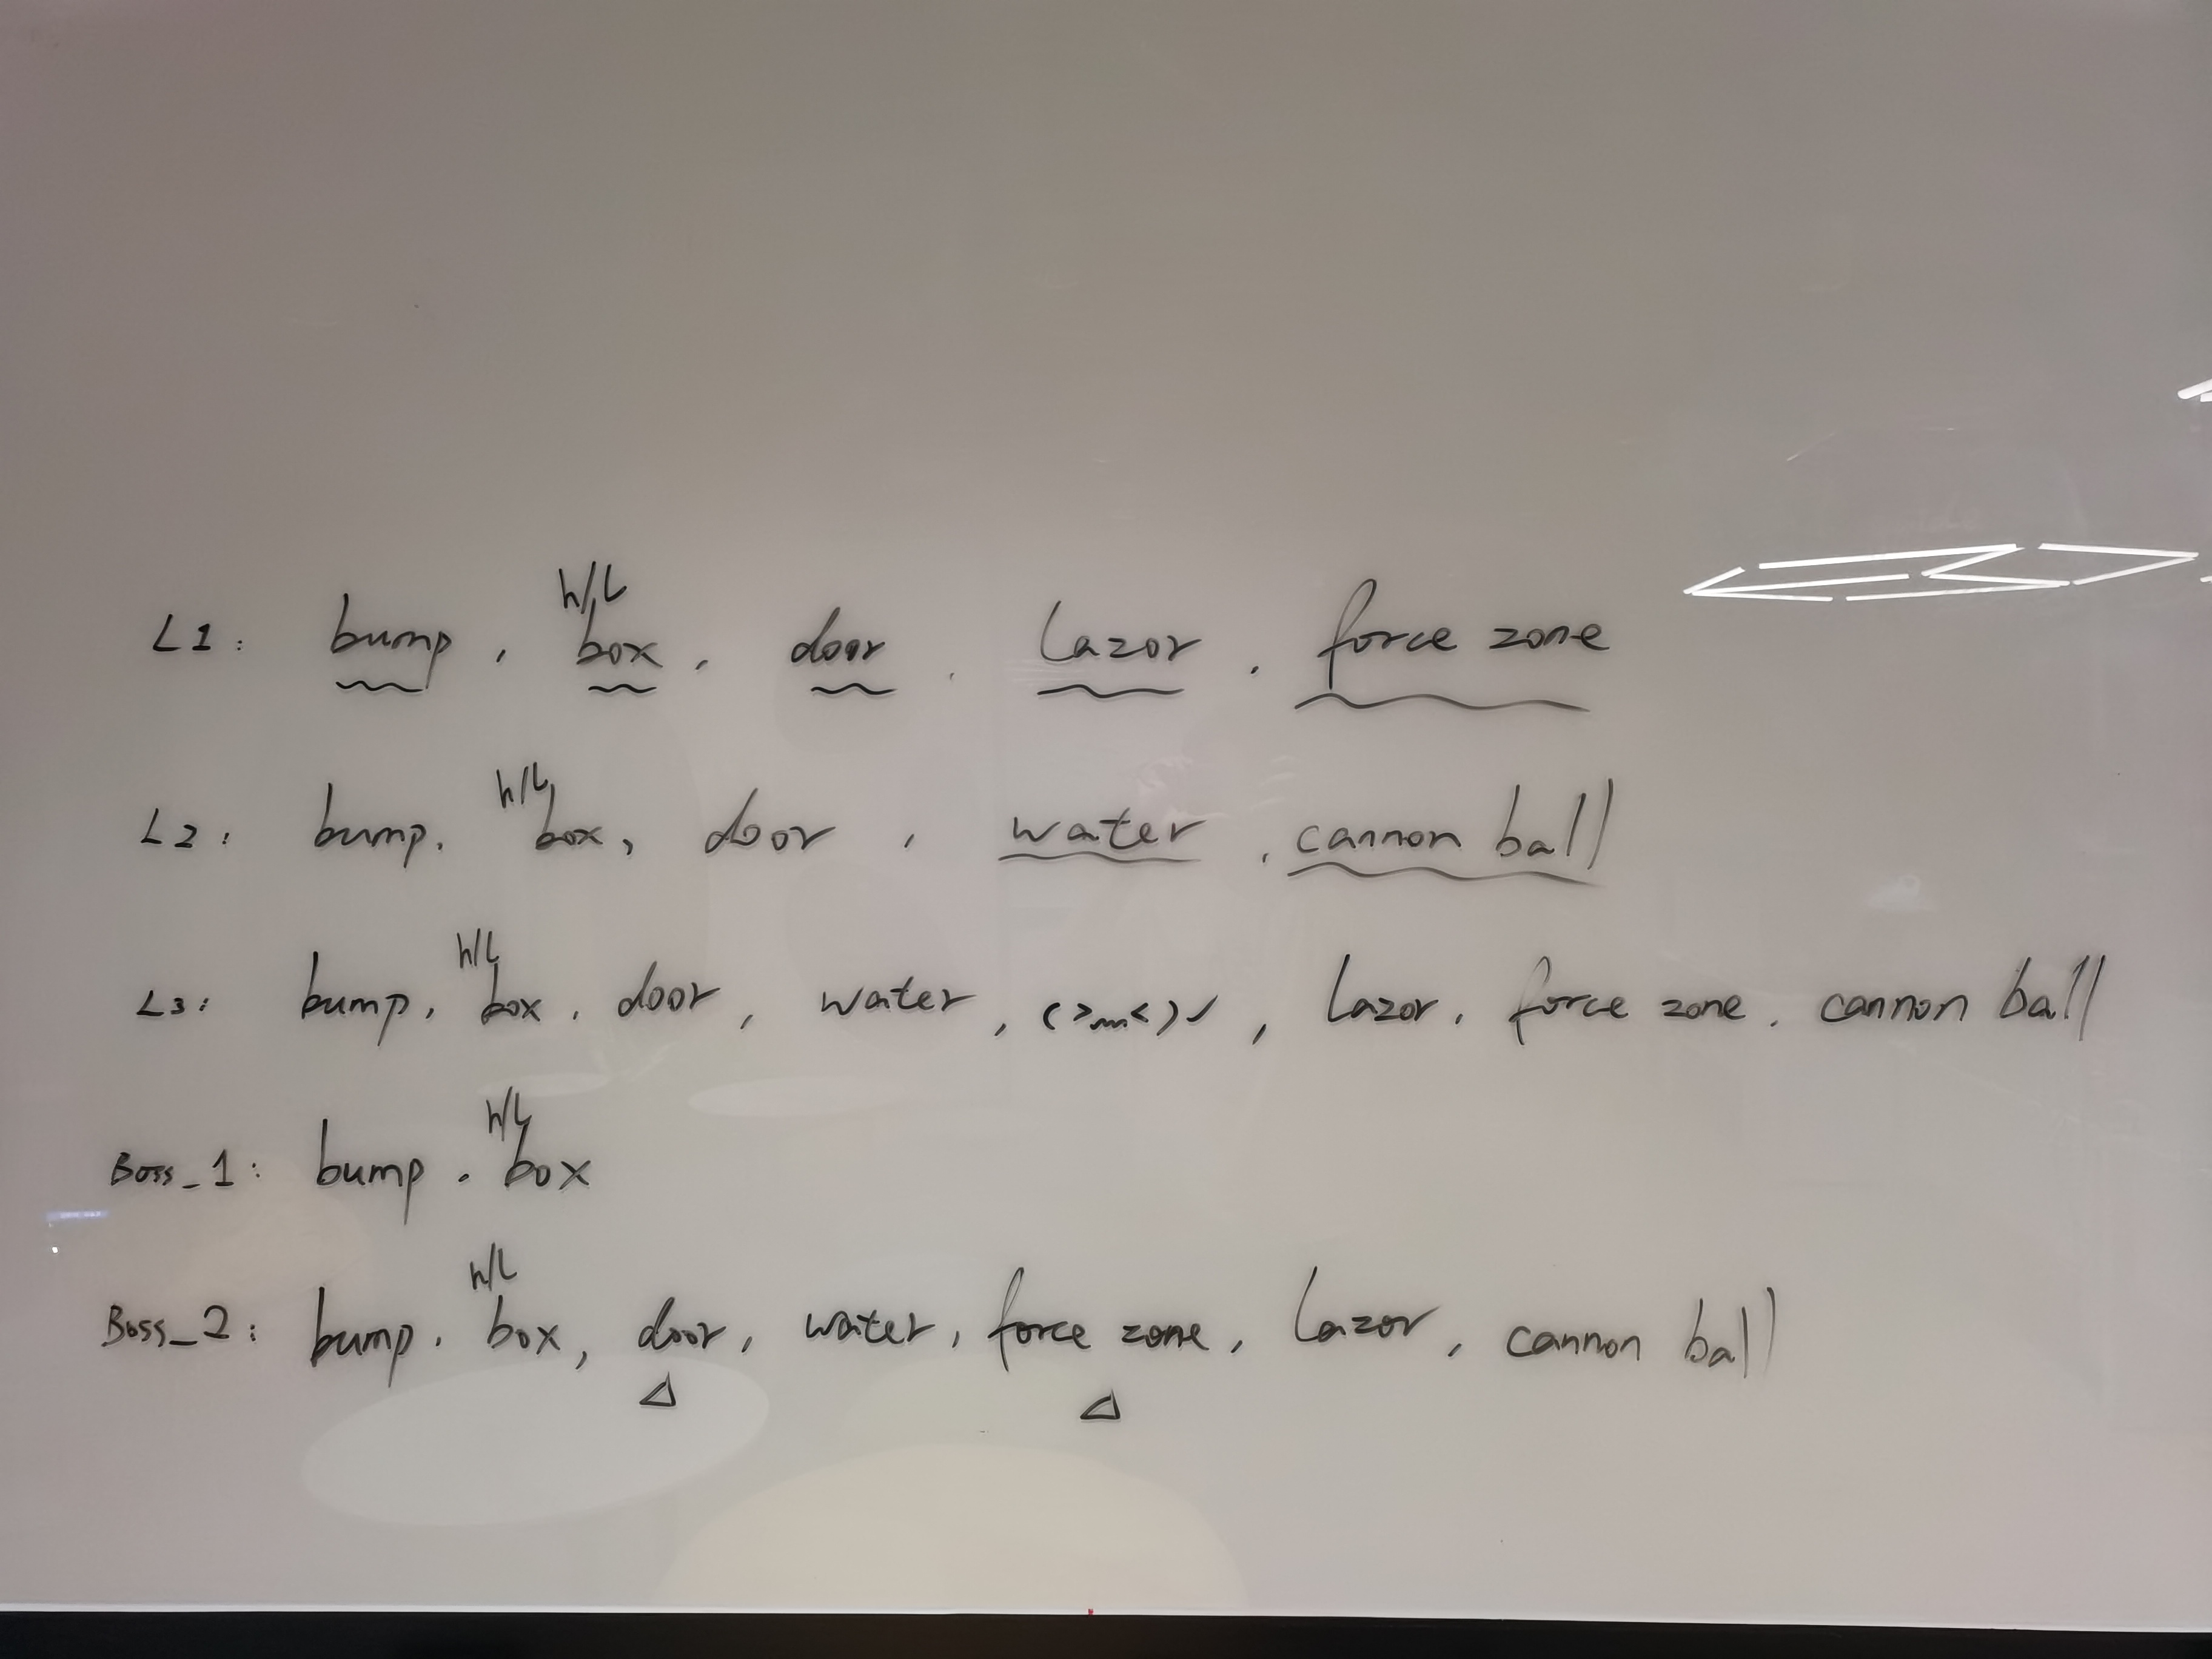 h/L
L1: bump, box, door, Lazor, force zone
h/L
L2: bump, box, door, water, cannon ball
h/L
L3: bump, box, door, water, (>m<)✓, Lazor, force zone, cannon ball
h/L
Boss_1: bump, box
h/L
Boss_2: bump, box, door, water, force zone, Lazor, cannon ball
△ △